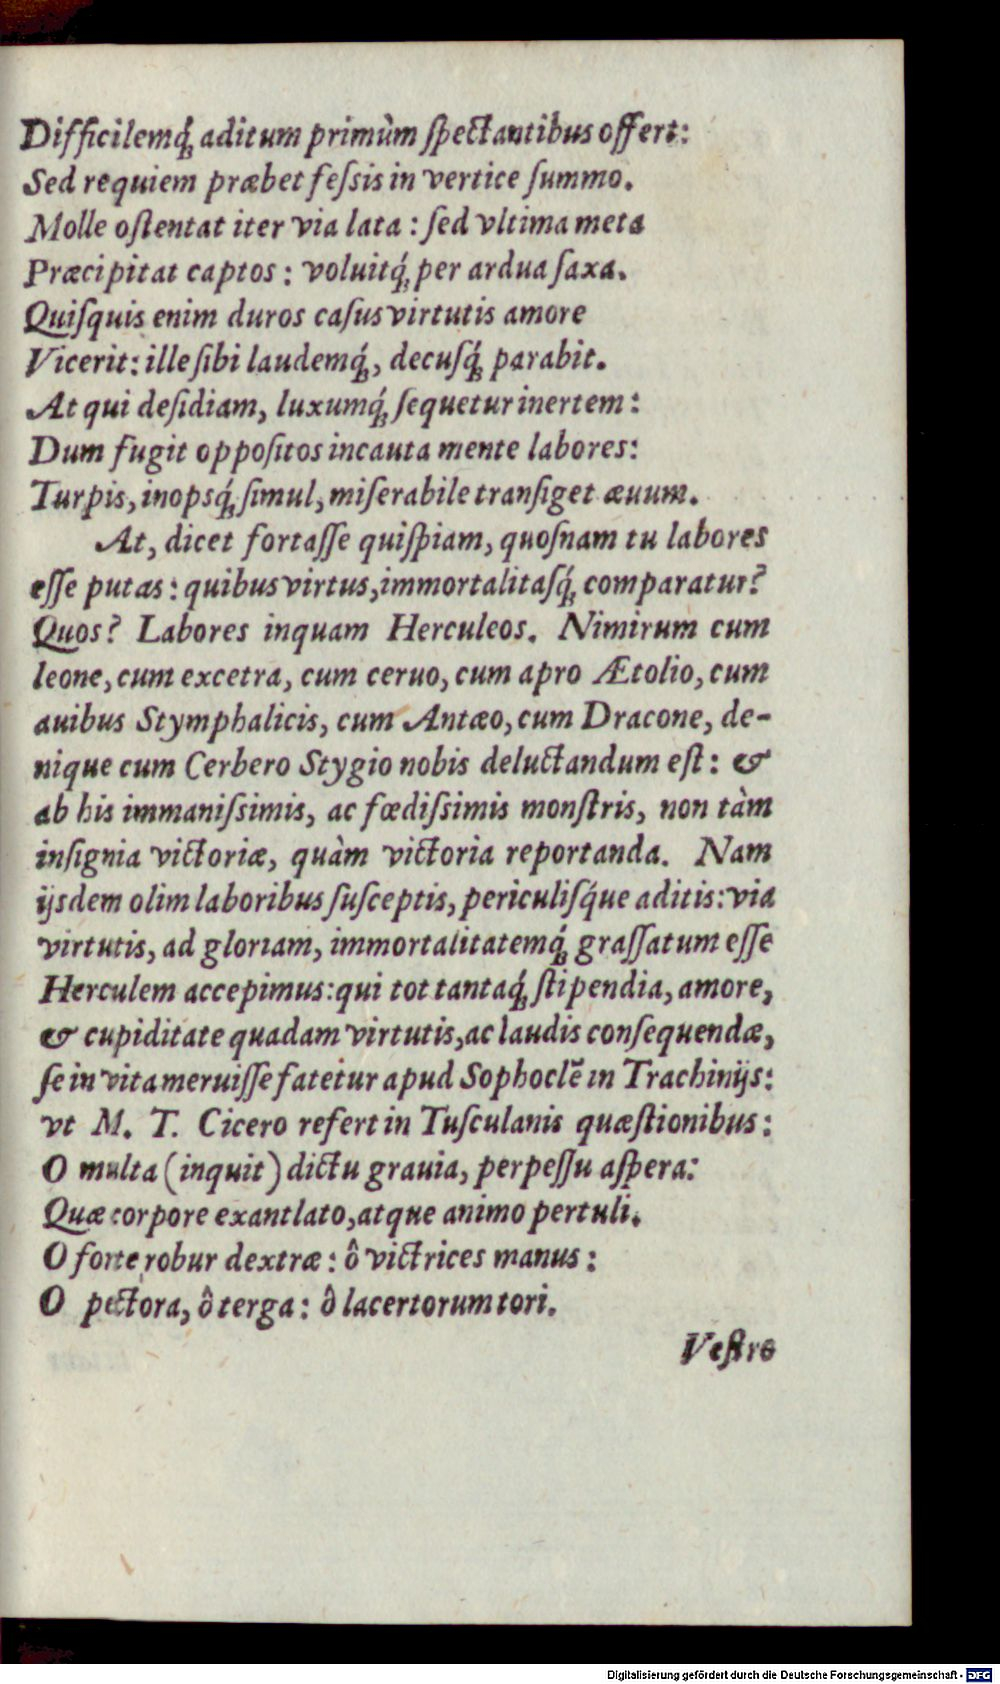 Difficilemq́ aditum primùm ſpectantibus offert:
Sed requiem præbet feſsis in vertice ſummo.
Molle oſtentat iter via lata : ſed vltima meta
Præcipitat captos : voluitq́ per ardua ſaxa.
Quiſquis enim duros caſus virtutis amore
Vicerit: ille ſibi laudemq́, decuſq́ parabit.
At qui deſidiam, luxumq́ ſequetur inertem :
Dum fugit oppoſitos incauta mente labores:
Turpis, inopsq́ ſimul, miſerabile tranſiget æuum.
At, dicet fortaſſe quiſpiam, quoſnam tu labores
eſſe putas : quibus virtus, immortalitaſq́ comparatur?
Quos? Labores inquam Herculeos. Nimirum cum
leone, cum excetra, cum ceruo, cum apro Ætolio, cum
auibus Stymphalicis, cum Antæo, cum Dracone, de-
nique cum Cerbero Stygio nobis deluctandum eſt : &
ab his immaniſsimis, ac fœdiſsimis monſtris, non tàm
inſignia victoriæ, quàm victoria reportanda. Nam
ijsdem olim laboribus ſuſceptis, periculiſq́ue aditis: via
virtutis, ad gloriam, immortalitatemq́ graſſatum eſſe
Herculem accepimus: qui tot tantaq́ ſtipendia, amore,
& cupiditate quadam virtutis, ac laudis conſequendæ,
ſe in vita meruiſſe fatetur apud Sophoclē in Trachinijs:
vt M. T. Cicero refert in Tuſculanis quæſtionibus :
O multa (inquit) dictu grauia, perpeſſu aſpera:
Quæ corpore exantlato, atque animo pertuli.
O forte robur dextræ : ô victrices manus :
O pectora, ô terga : ô lacertorum tori.
Veſtro
Digitalisierung gefördert durch die Deutsche Forschungsgemeinschaft - DFG